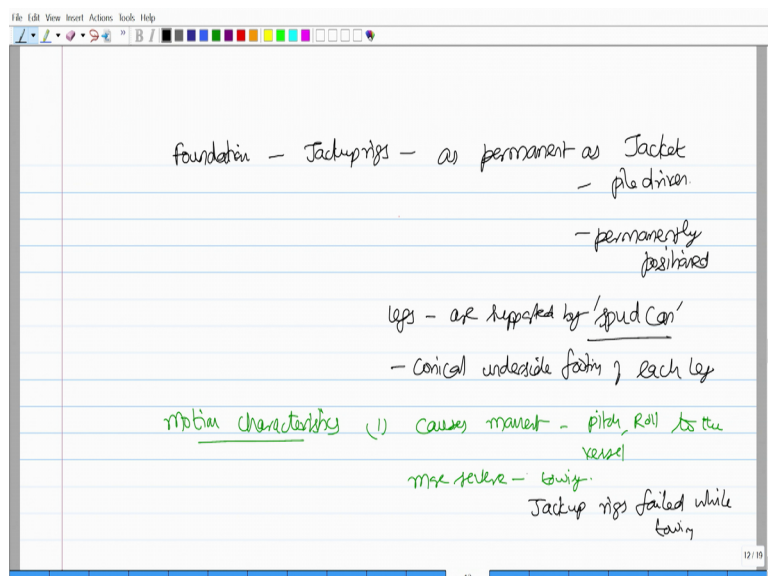 File Edit View Insert Actions Tools Help
B I
foundation – Jackup rigs – as permanent as Jacket
– pile driven.
– permanently
positioned
legs – are supported by 'spud can'
– Conical underside footing of each leg
Motion characteristics (1) Causes moment – pitch, Roll to the
vessel
more severe – towing.
Jackup rigs failed while
towing
12 / 19